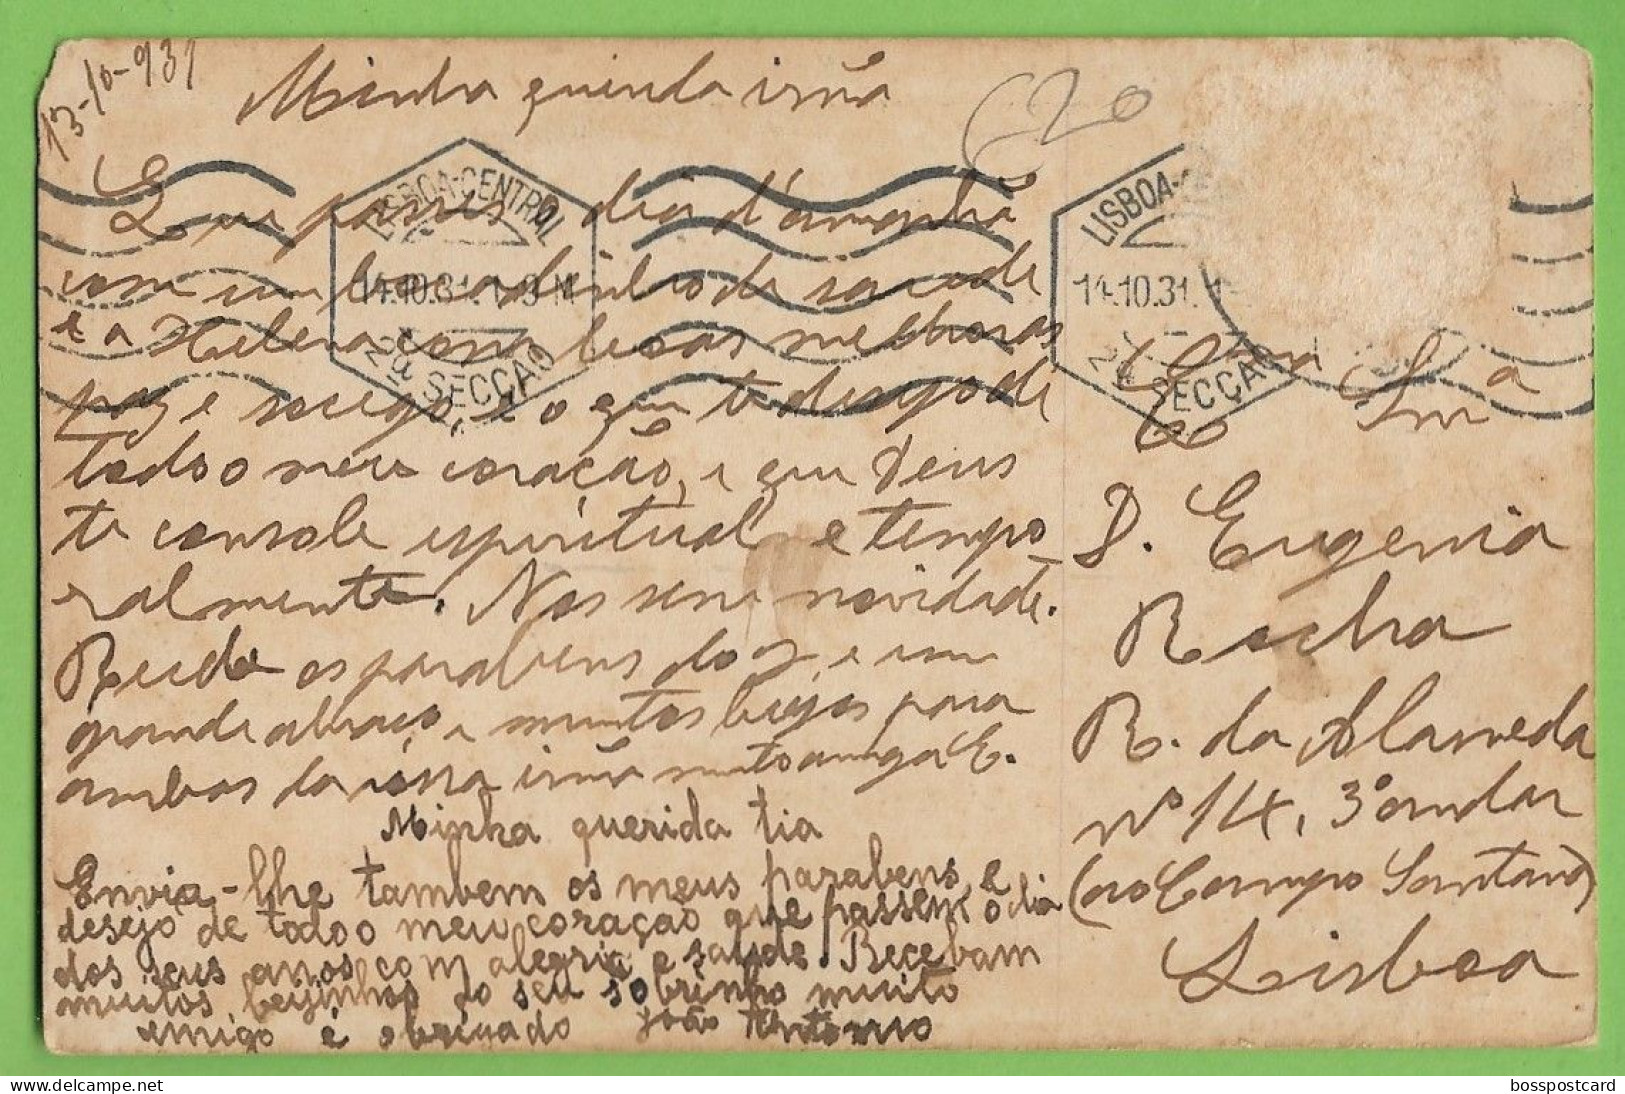 13-10-931
Minha querida irmã
Que passes o dia d'amanhã
com um bocadinho de saude
e a Helena com boas melhoras
paz e socego, é o que te desejo de
todo o meu coração, e que Deus
te console espiritual e tempo-
ralmente. Nos sem novidade.
Recebe os parabens dos e um
grande abraço e muitos beijos para
ambas da vossa irmã muito amiga E.
Minha querida tia
Envia-lhe tambem os meus parabens, e
desejo de todo o meu coração que passem o dia
dos seus anos com alegria e saude. Recebam
muitos beijinhos do seu sobrinho muito
amigo e obrigado João Antonio
20
LISBOA-CENTRAL
14.10.31.
2ª SECÇÃO
LISBOA-
14.10.31.
2ª SECÇÃO
Exma Snra
D. Eugenia
Rocha
R. da Alameda
nº 14, 3º andar
(ao Campo Santana)
Lisboa
bosspostcard